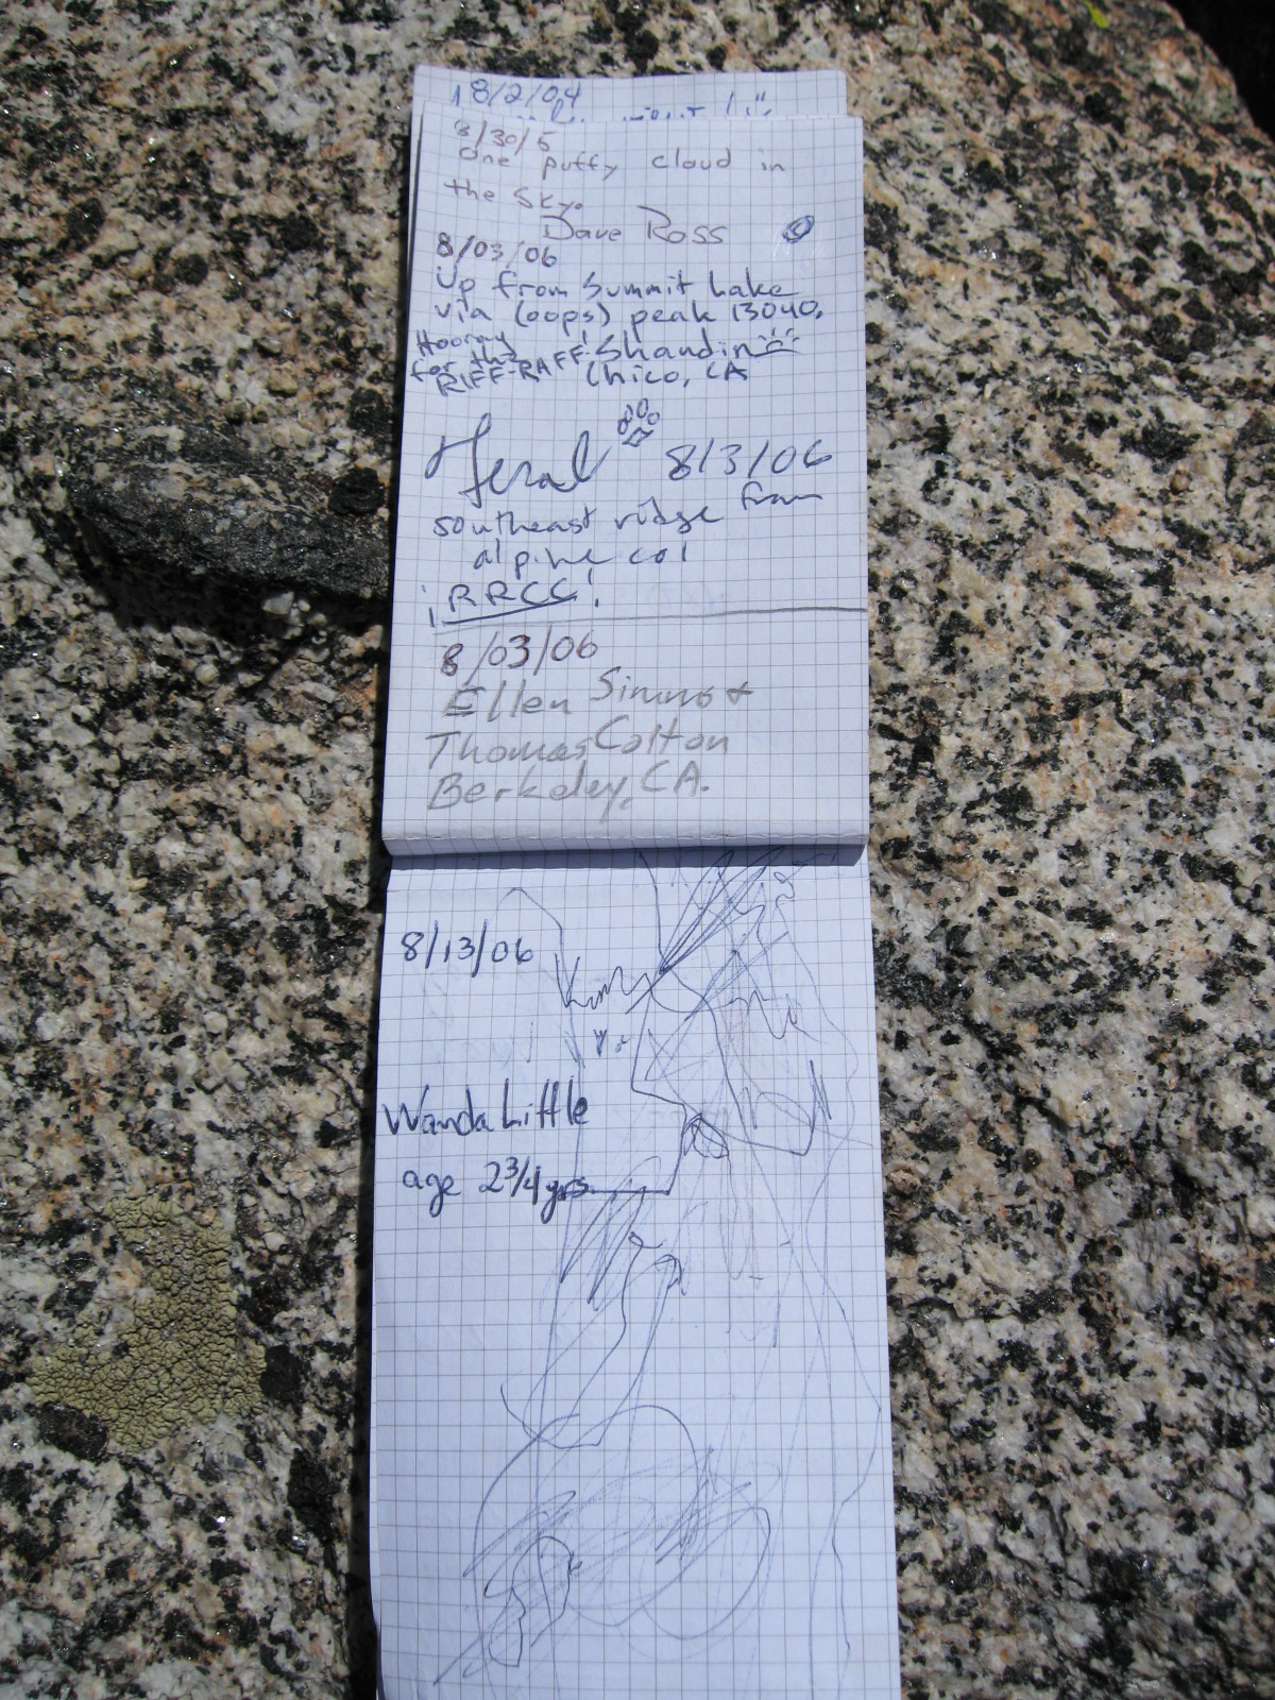 18/2/04
8/30/5
One puffy cloud in
the sky.
Dave Ross
8/03/06
Up from Summit Lake
via (oops) peak 13040.
Hooray
for the
RIFF-RAFF!
Shandin
Chico, CA
8/3/06
southeast ridge from
alpine col
¡RRCC!
8/03/06
Ellen Simms +
Thomas Colton
Berkeley, CA.
8/13/06
Wanda Little
age 2 3/4 yrs